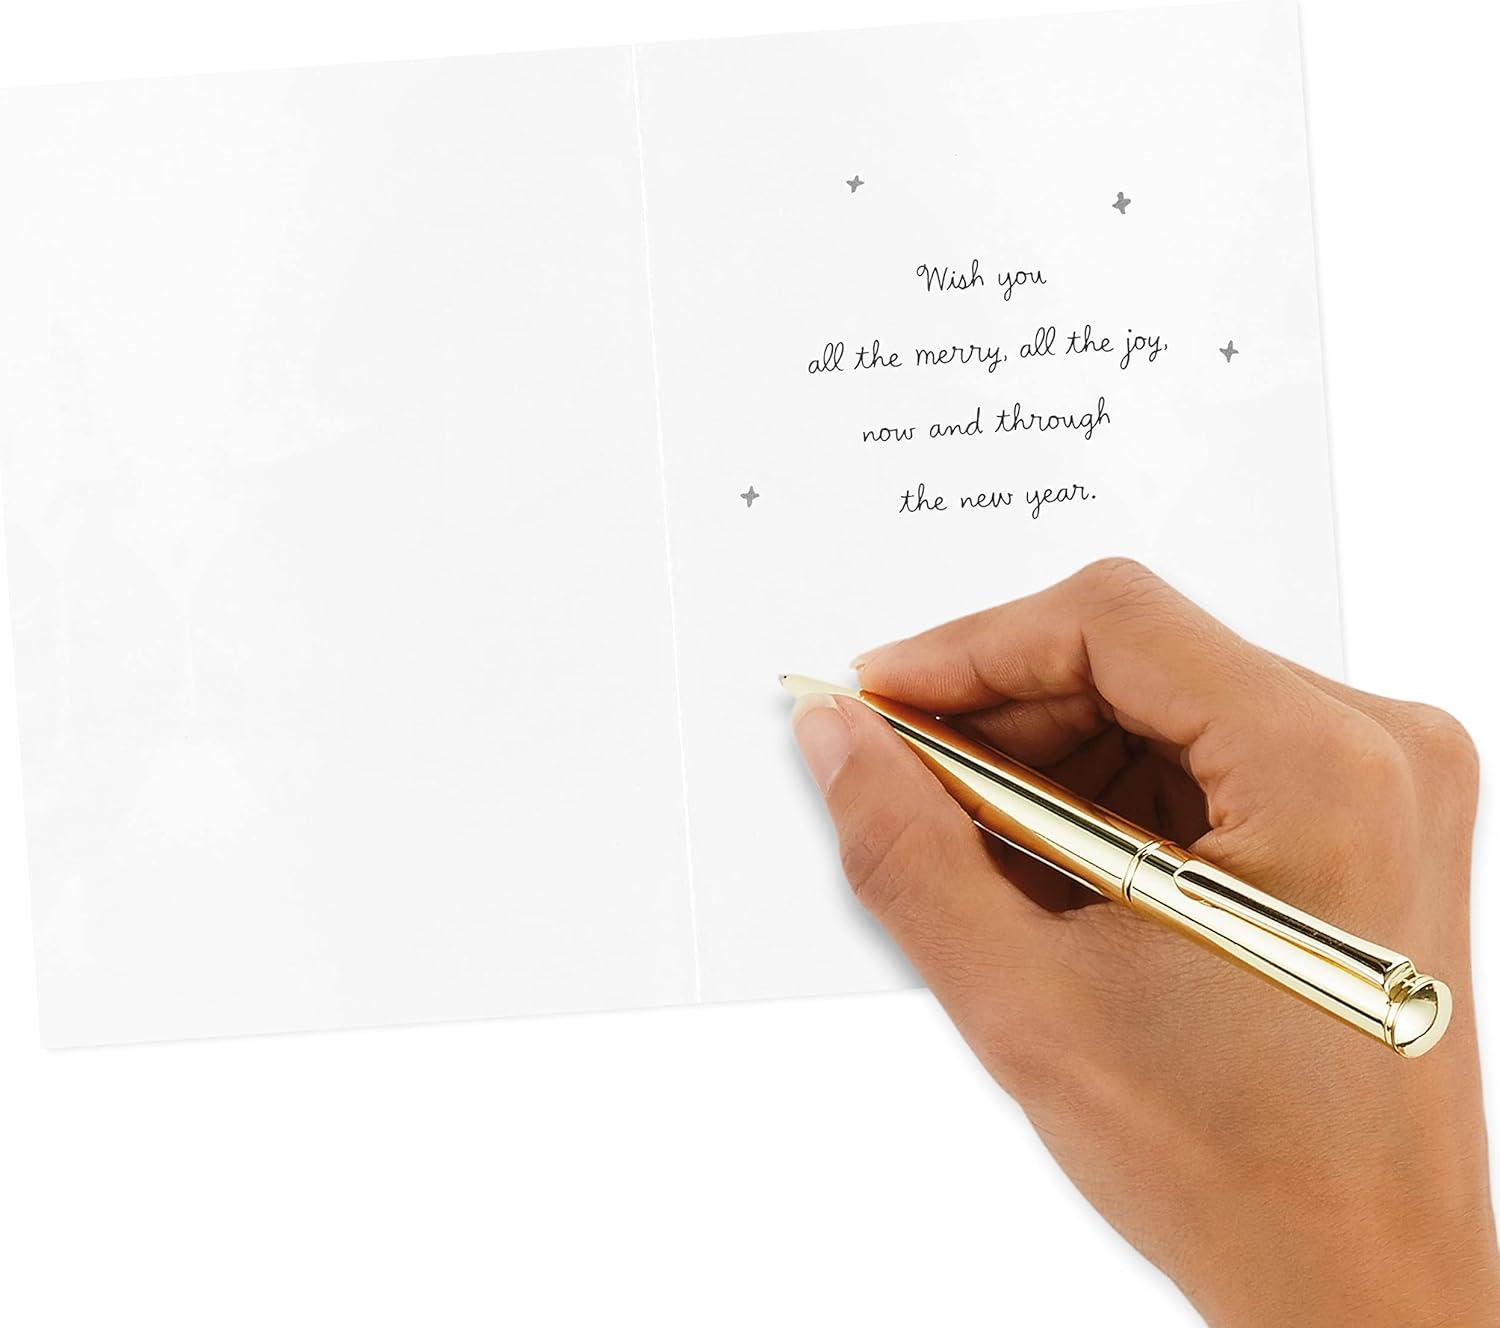 Wish you
all the merry, all the joy,
now and through
the new year.